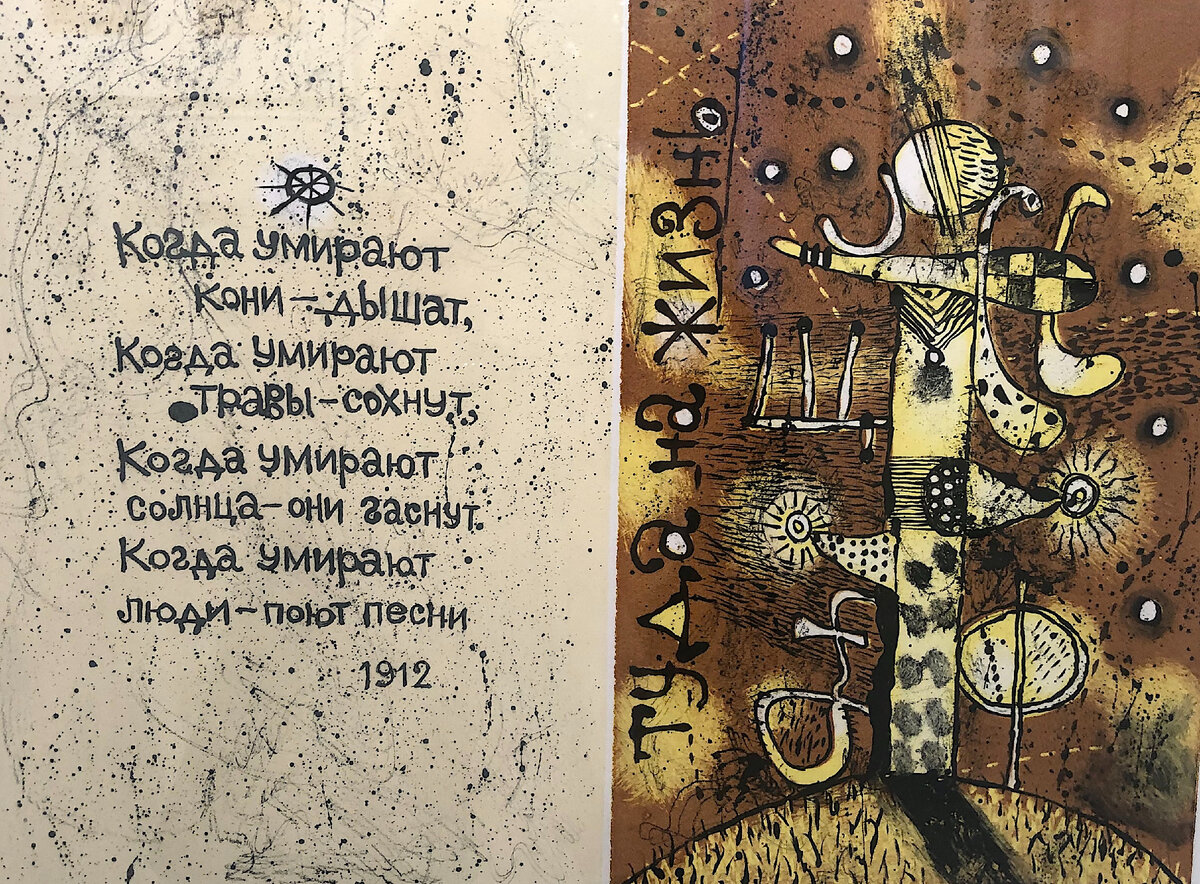 Когда умирают
кони – дышат,
Когда умирают
травы – сохнут,
Когда умирают
солнца – они гаснут.
Когда умирают
люди – поют песни
1912
туда на жизнь